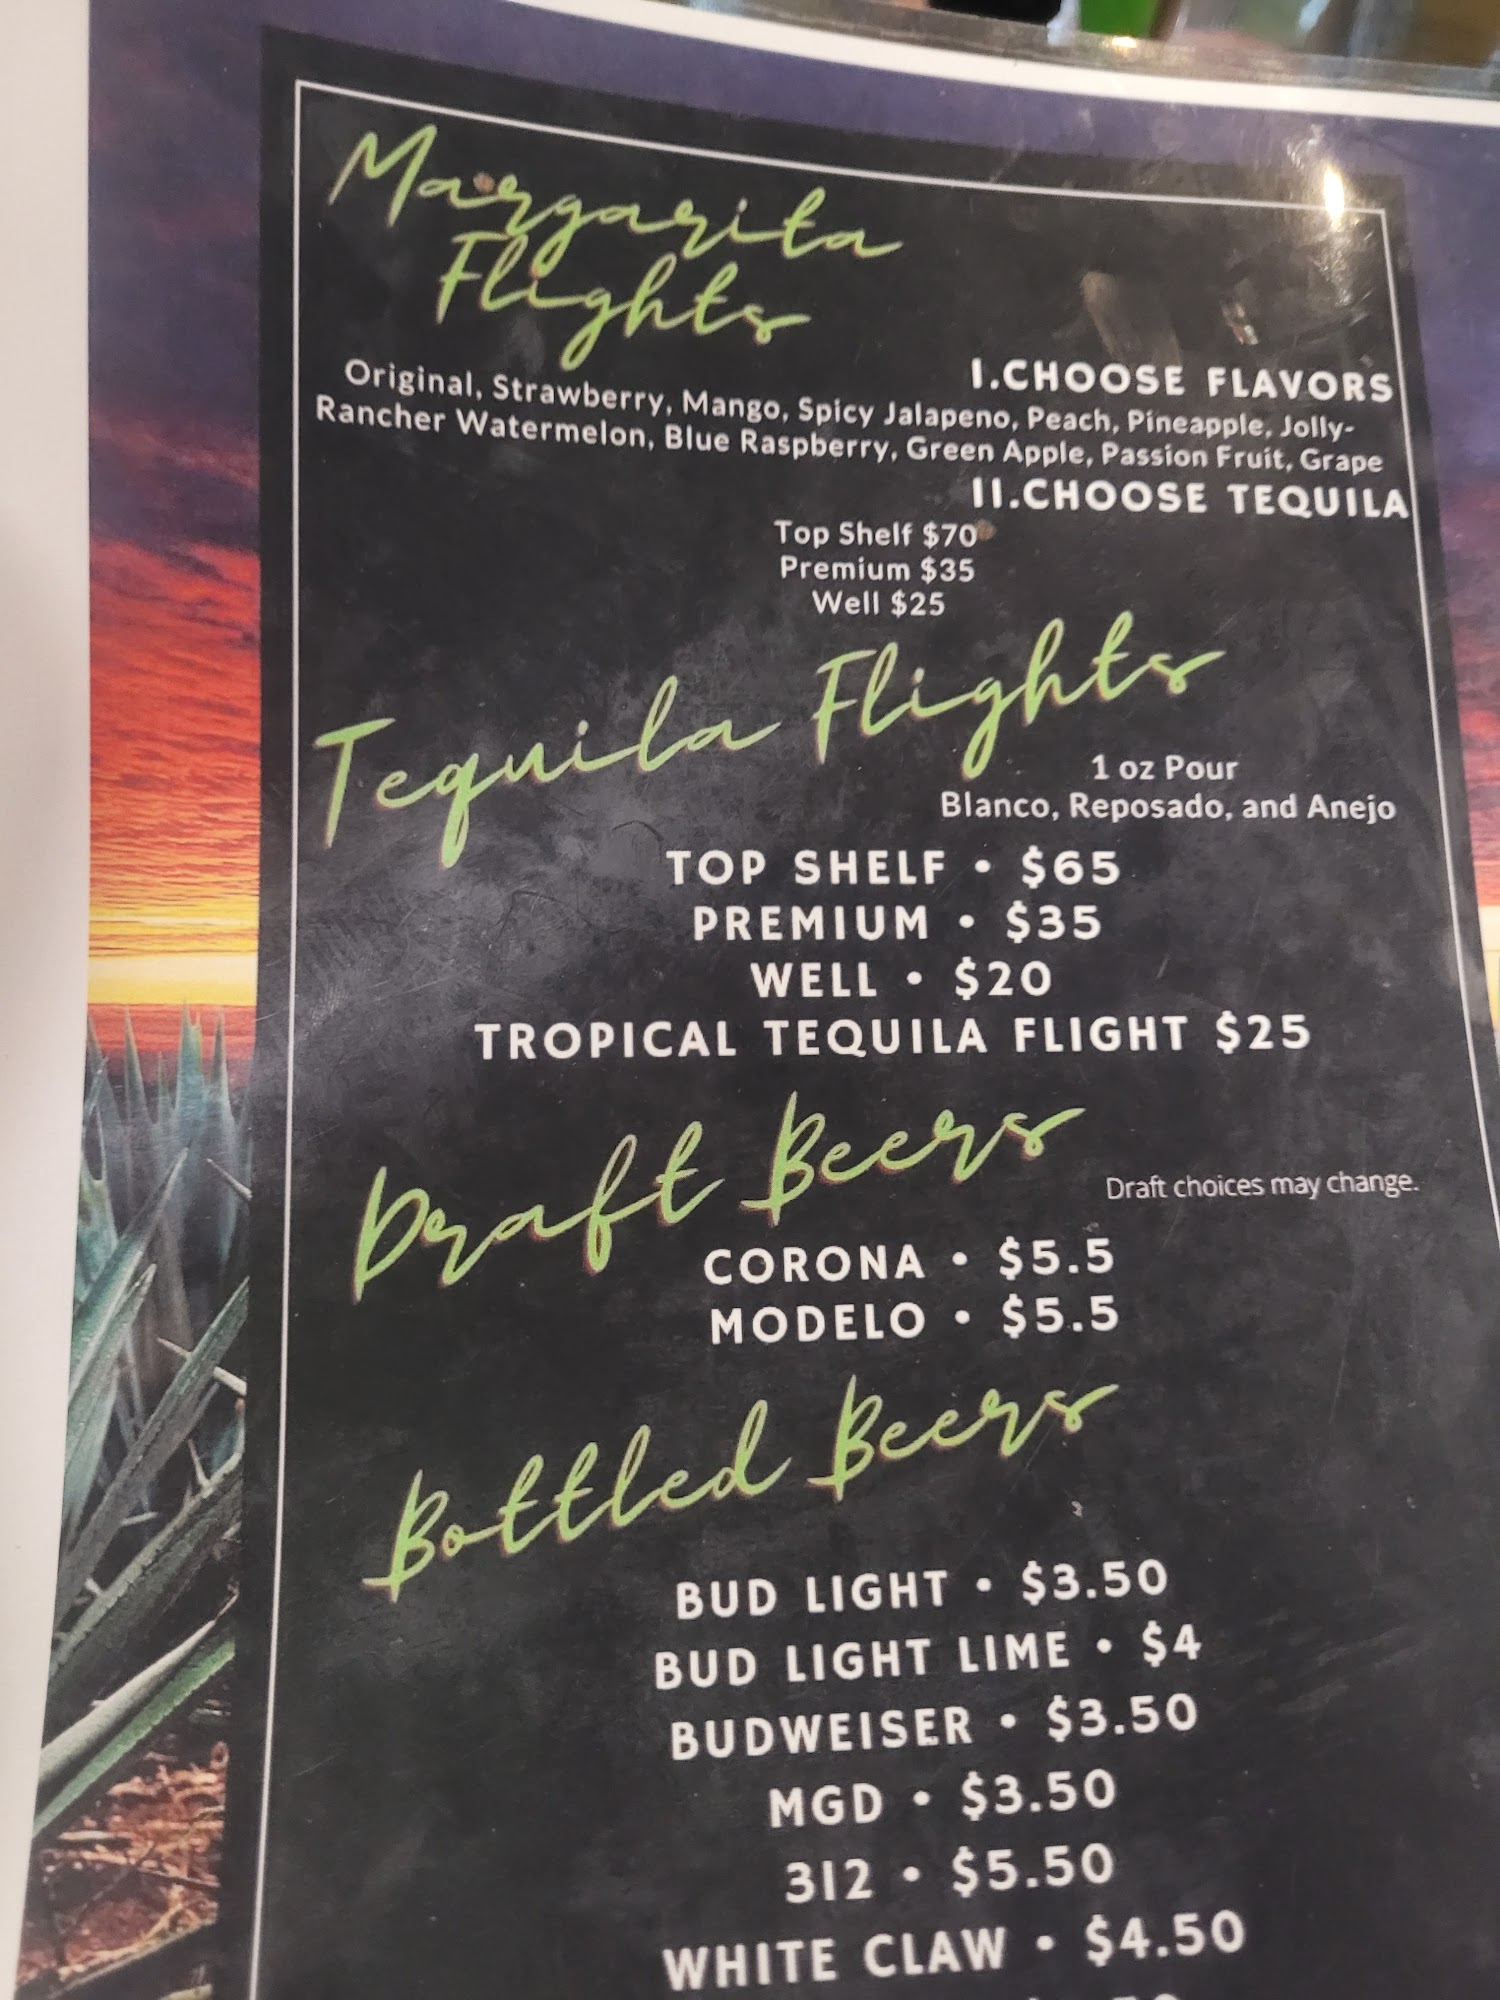 Margarita
Flights
I.CHOOSE FLAVORS
Original, Strawberry, Mango, Spicy Jalapeno, Peach, Pineapple, Jolly-
Rancher Watermelon, Blue Raspberry, Green Apple, Passion Fruit, Grape
II.CHOOSE TEQUILA
Top Shelf $70
Premium $35
Well $25
Tequila Flights
1 oz Pour
Blanco, Reposado, and Anejo
TOP SHELF • $65
PREMIUM • $35
WELL • $20
TROPICAL TEQUILA FLIGHT $25
Draft Beers
Draft choices may change.
CORONA • $5.5
MODELO • $5.5
Bottled Beers
BUD LIGHT • $3.50
BUD LIGHT LIME • $4
BUDWEISER • $3.50
MGD • $3.50
312 • $5.50
WHITE CLAW • $4.50